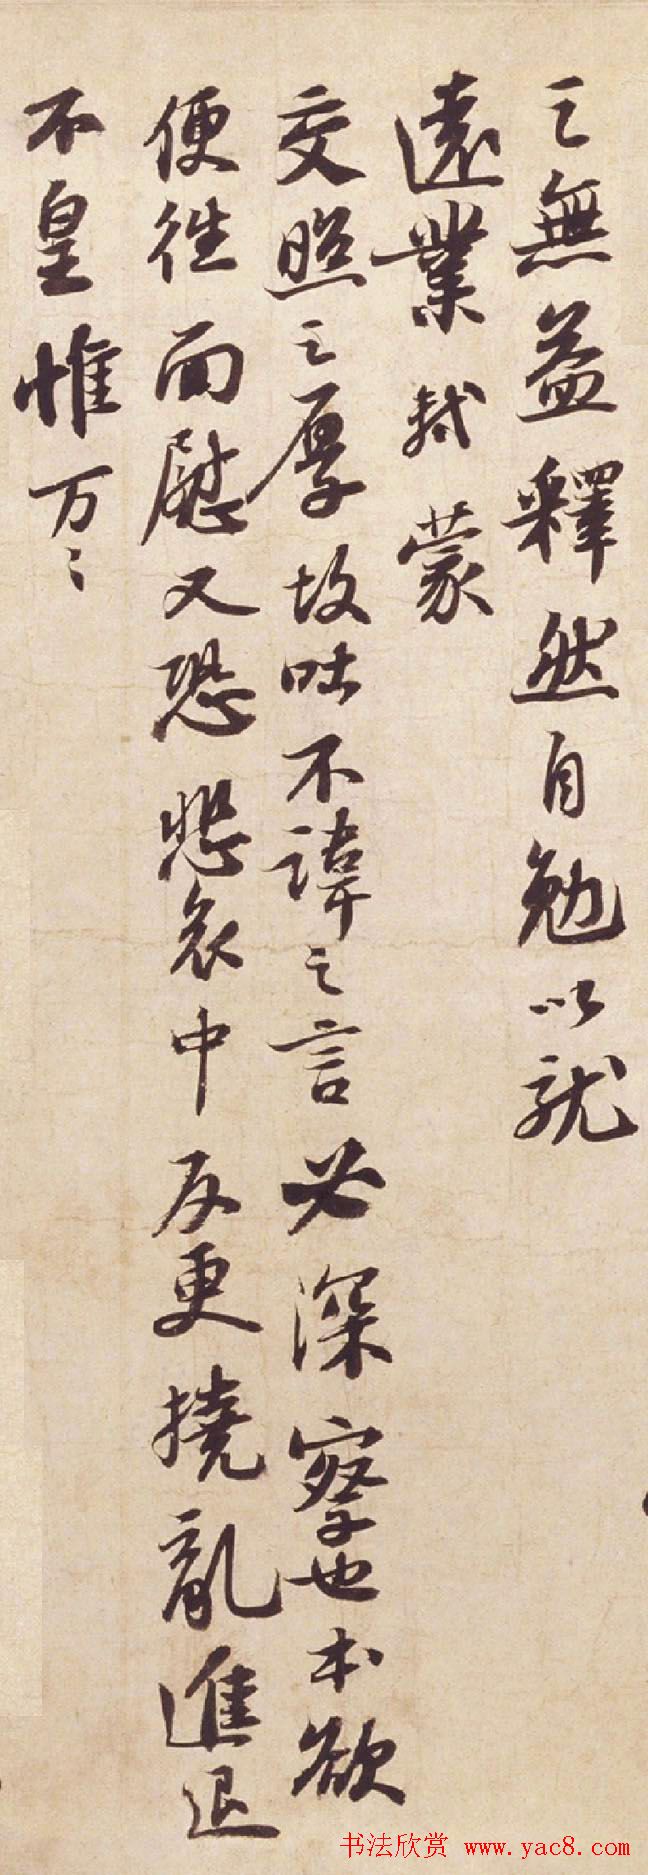 之無益釋然自勉以就
遠業軾蒙
交照之厚故吐不諱之言必深察也本欲
便往面慰又恐悲哀中反更撓亂進退
不皇惟万〻
书法欣赏 www.yac8.com